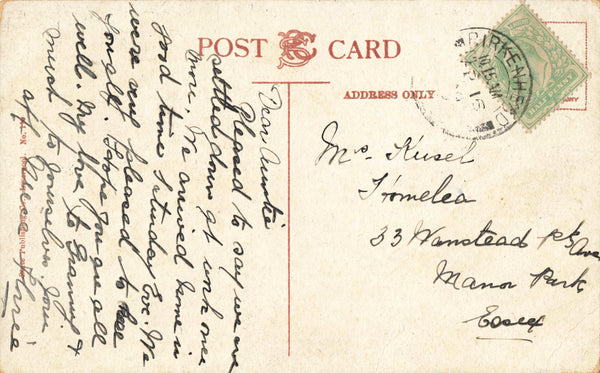 POST CARD
ADDRESS ONLY
BIRKENHEAD
HALFPENNY
Dear Auntie
Pleased to say we are
settled down at work once
more. We arrived home in
good time Saturday Eve. We
were very pleased to see
Tonight. Hope you are all
well. My love to Granny &
much to yourselves your
aff Niece
Mrs Kusel
Homelea
33 Wanstead Pk Ave
Manor Park
Essex